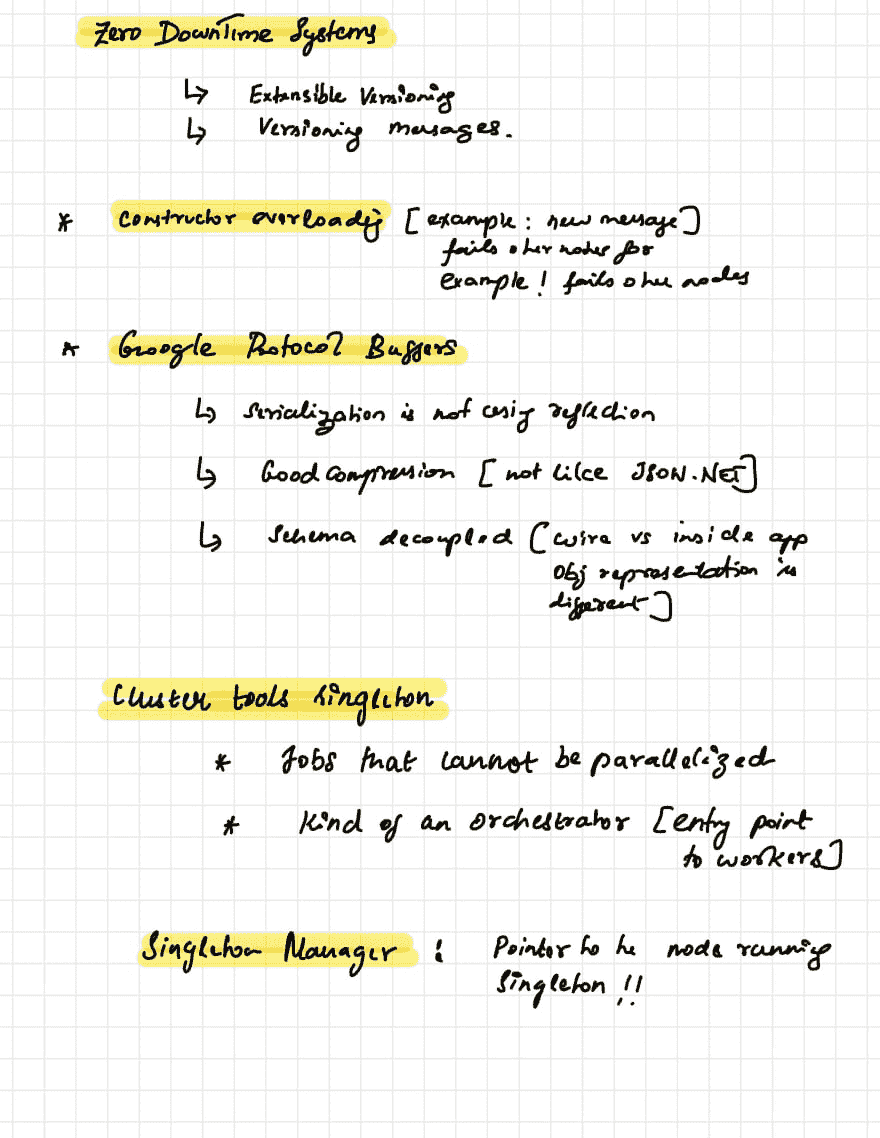 Zero DownTime Systems
↳ Extensible Versioning
↳ Versioning messages.
* Constructor overloadig [example: new message]
fails other nodes for
example! fails other nodes
* Google Protocol Buffers
↳ Serialization is not using reflection
↳ Good Compression [not like JSON.NET]
↳ Schema decoupled [wire vs inside app
Obj representation is
different]
Cluster tools Singleton
* Jobs that cannot be parallelized
* Kind of an orchestrator [entry point
to workers]
Singleton Manager : Pointer to he node running
Singleton !!